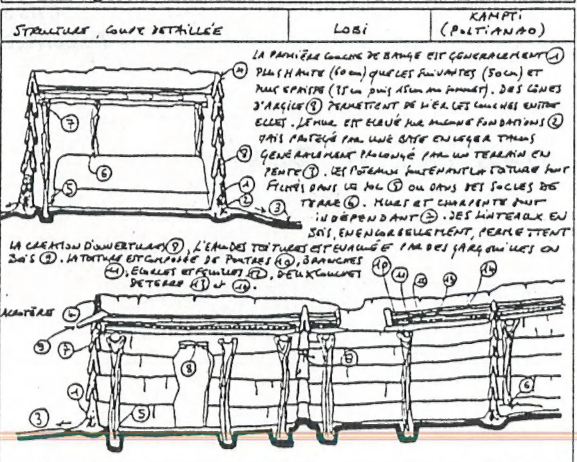 STRUCTURE, COUPE DETAILLÉE
LOBI
KAMPTI
(POLTIANAO)
LA PREMIÈRE COUCHE DE BANGE EST GENERALEMENT ①
PLUS HAUTE (60 cm) QUE LES SUIVANTES (50 cm) ET
PLUS EPAISSE (35 cm puis 15 cm au sommet). DES CÔNES
D'ARGILE ⑧ PERMETTENT DE LIER LES COUCHES ENTRE
ELLES. LE MUR EST ELEVÉ SUR AUCUNE FONDATIONS ②
MAIS PROTÉGÉ PAR UNE BASE EN LEGER TALUS
GENERALEMENT PROLONGÉ PAR UN TERRAIN EN
PENTE ③. LES POTEAUX SOUTENANT LA TOITURE SONT
FICHÉS DANS LE SOL ⑤ OU DANS DES SOCLES DE
TERRE ⑥. MURS ET CHARPENTE SONT
INDÉPENDANT ⑦. DES LINTEAUX EN
BOIS, EN ENCORBELLEMENT, PERMETTENT
LA CREATION D'OUVERTURES ⑧, L'EAU DES TOITURES EST EVACUÉE PAR DES GARGOUILLES EN
BOIS ⑨. LA TOITURE EST COMPOSÉE DE POUTRES ⑩, BRANCHES
⑪, ECORCES ET FEUILLES ⑫, DEUX COUCHES
DE TERRE ⑬ et ⑭.
④
⑦
⑥
⑧
①
②
③
⑤
⑩ ⑪ ⑫ ⑬ ⑭
ACROTÈRE ④
⑨
⑦
⑧
⑧
①
③
⑤
⑥